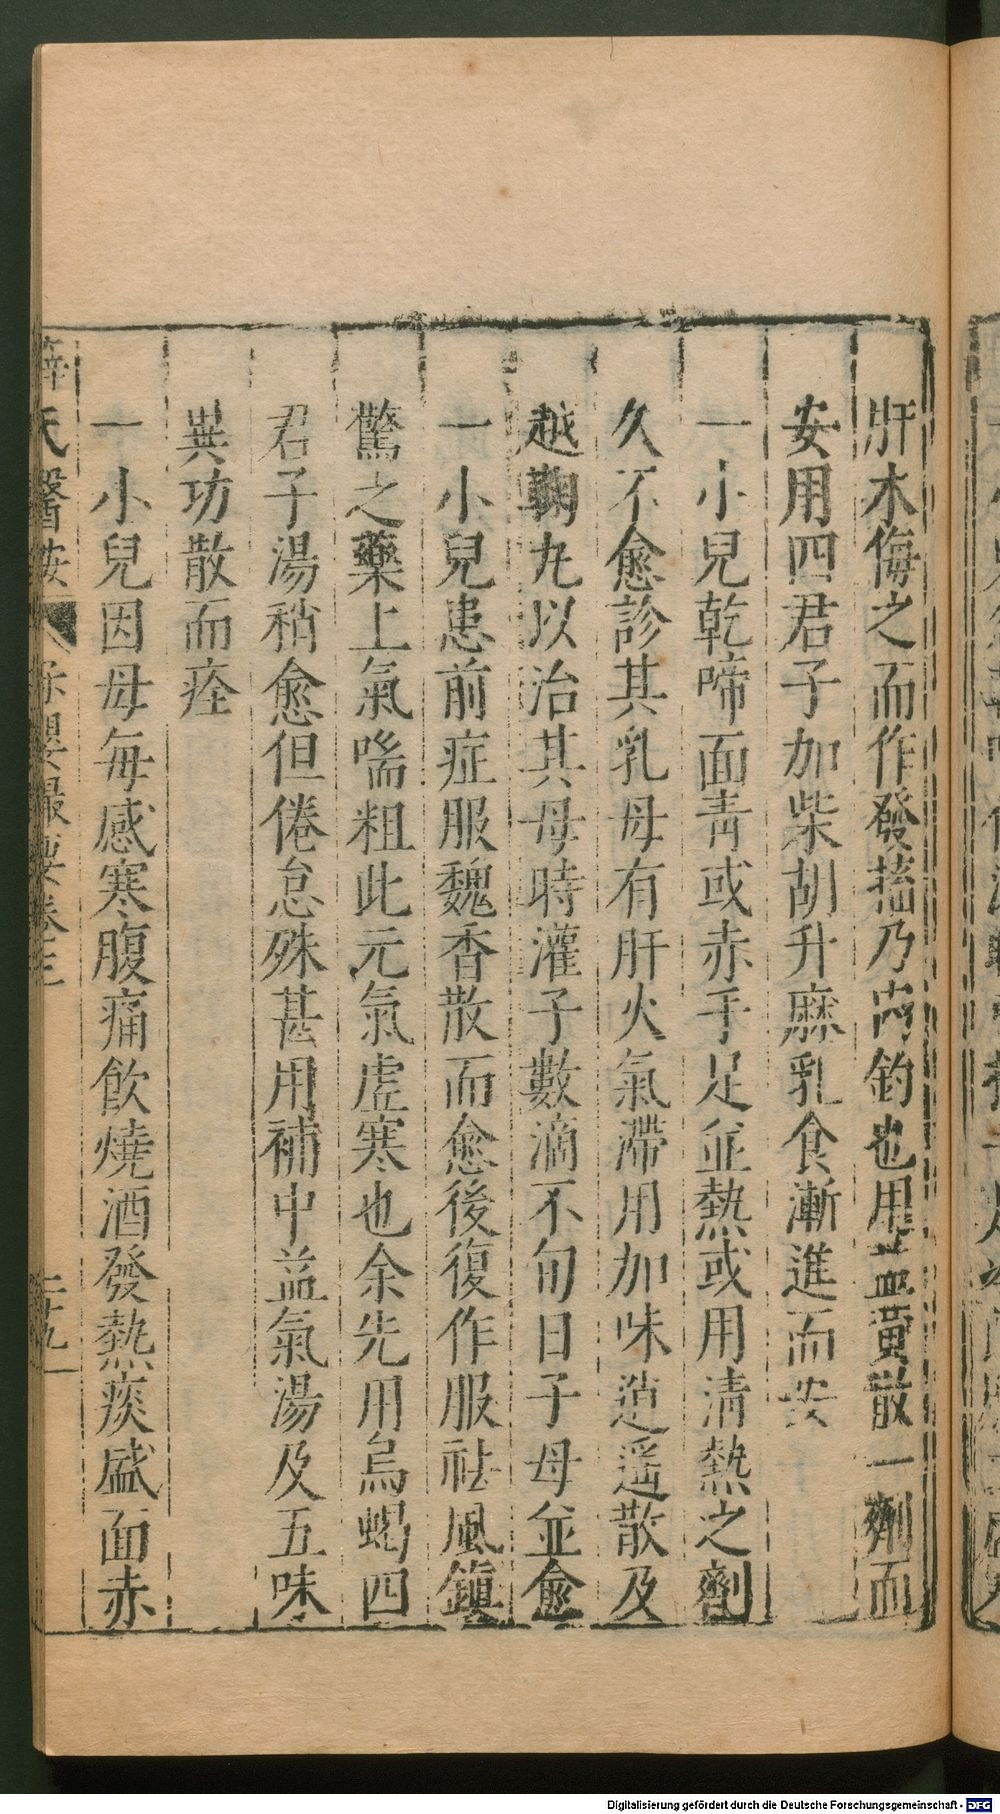 肝木侮之而作發搐乃內釣也用韲黃散一劑而
安用四君子加柴胡升麻乳食漸進而安
一小兒乾啼面青或赤手足並熱或用清熱之劑
久不愈診其乳母有肝火氣滯用加味逍遥散及
越鞠丸以治其母時灌子數滴不旬日子母並愈
一小兒患前症服魏香散而愈後復作服祛風鎮
驚之藥上氣喘粗此元氣虛寒也余先用烏蝎四
君子湯稍愈但倦怠殊甚用補中益氣湯及五味
異功散而痊
一小兒因母每感寒腹痛飲燒酒發熱痰盛面赤
薛氏醫按 保嬰撮要卷三 二十九
Digitalisierung gefördert durch die Deutsche Forschungsgemeinschaft - DFG